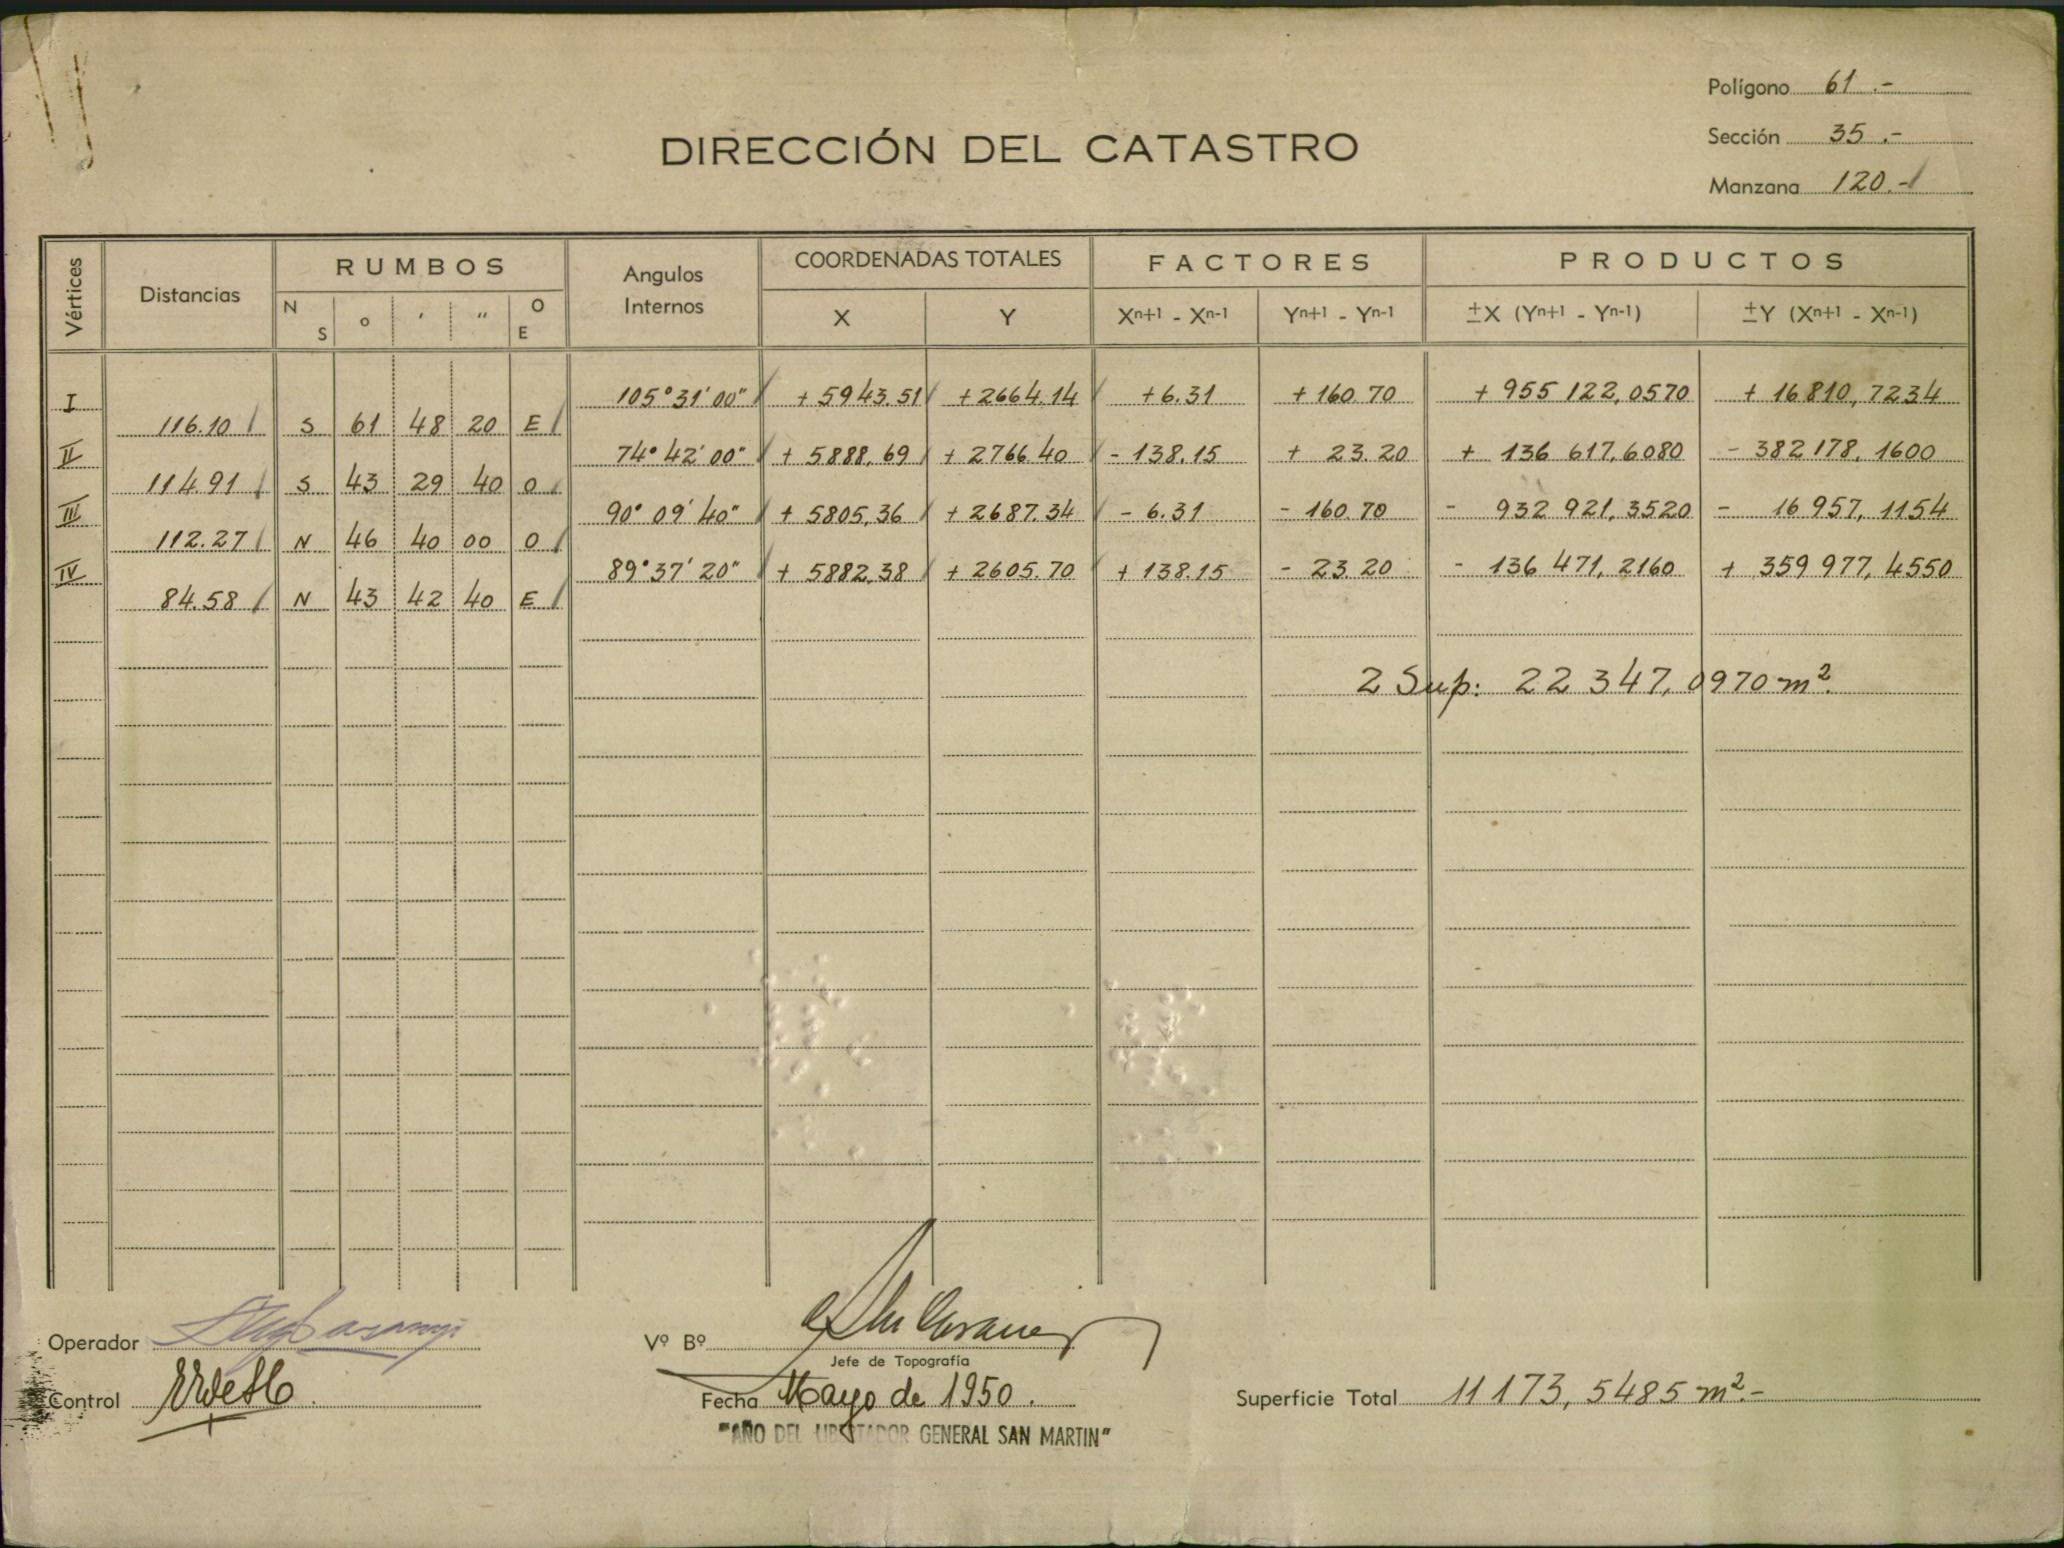 Polígono 61.-
Sección 35.-
Manzana 120.-
DIRECCIÓN DEL CATASTRO
Vértices Distancias RUMBOS Angulos Internos COORDENADAS TOTALES FACTORES PRODUCTOS
N S o ' " O E X Y Xn+1 - Xn-1 Yn+1 - Yn-1 ±X (Yn+1 - Yn-1) ±Y (Xn+1 - Xn-1)
I 105°31'00" + 5943.51 + 2664.14 + 6.31 + 160.70 + 955 122,0570 + 16 810,7234
116.10 S 61 48 20 E
II 74°42'00" + 5888,69 + 2766.40 - 138.15 + 23.20 + 136 617,6080 - 382 178,1600
114.91 S 43 29 40 O
III 90°09'40" + 5805,36 + 2687.34 - 6.31 - 160.70 - 932 921,3520 - 16 957,1154
112.27 N 46 40 00 O
IV 89°37'20" + 5882,38 + 2605.70 + 138.15 - 23.20 - 136 471,2160 + 359 977,4550
84.58 N 43 42 40 E
2 Sup: 22 347,0970 m².
Operador
Vº Bº
Jefe de Topografía
Control
Fecha Mayo de 1950.
Superficie Total 11 173,5485 m².-
"AÑO DEL LIBERTADOR GENERAL SAN MARTIN"